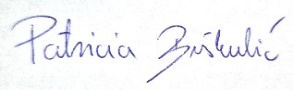 Patricia Biškulić